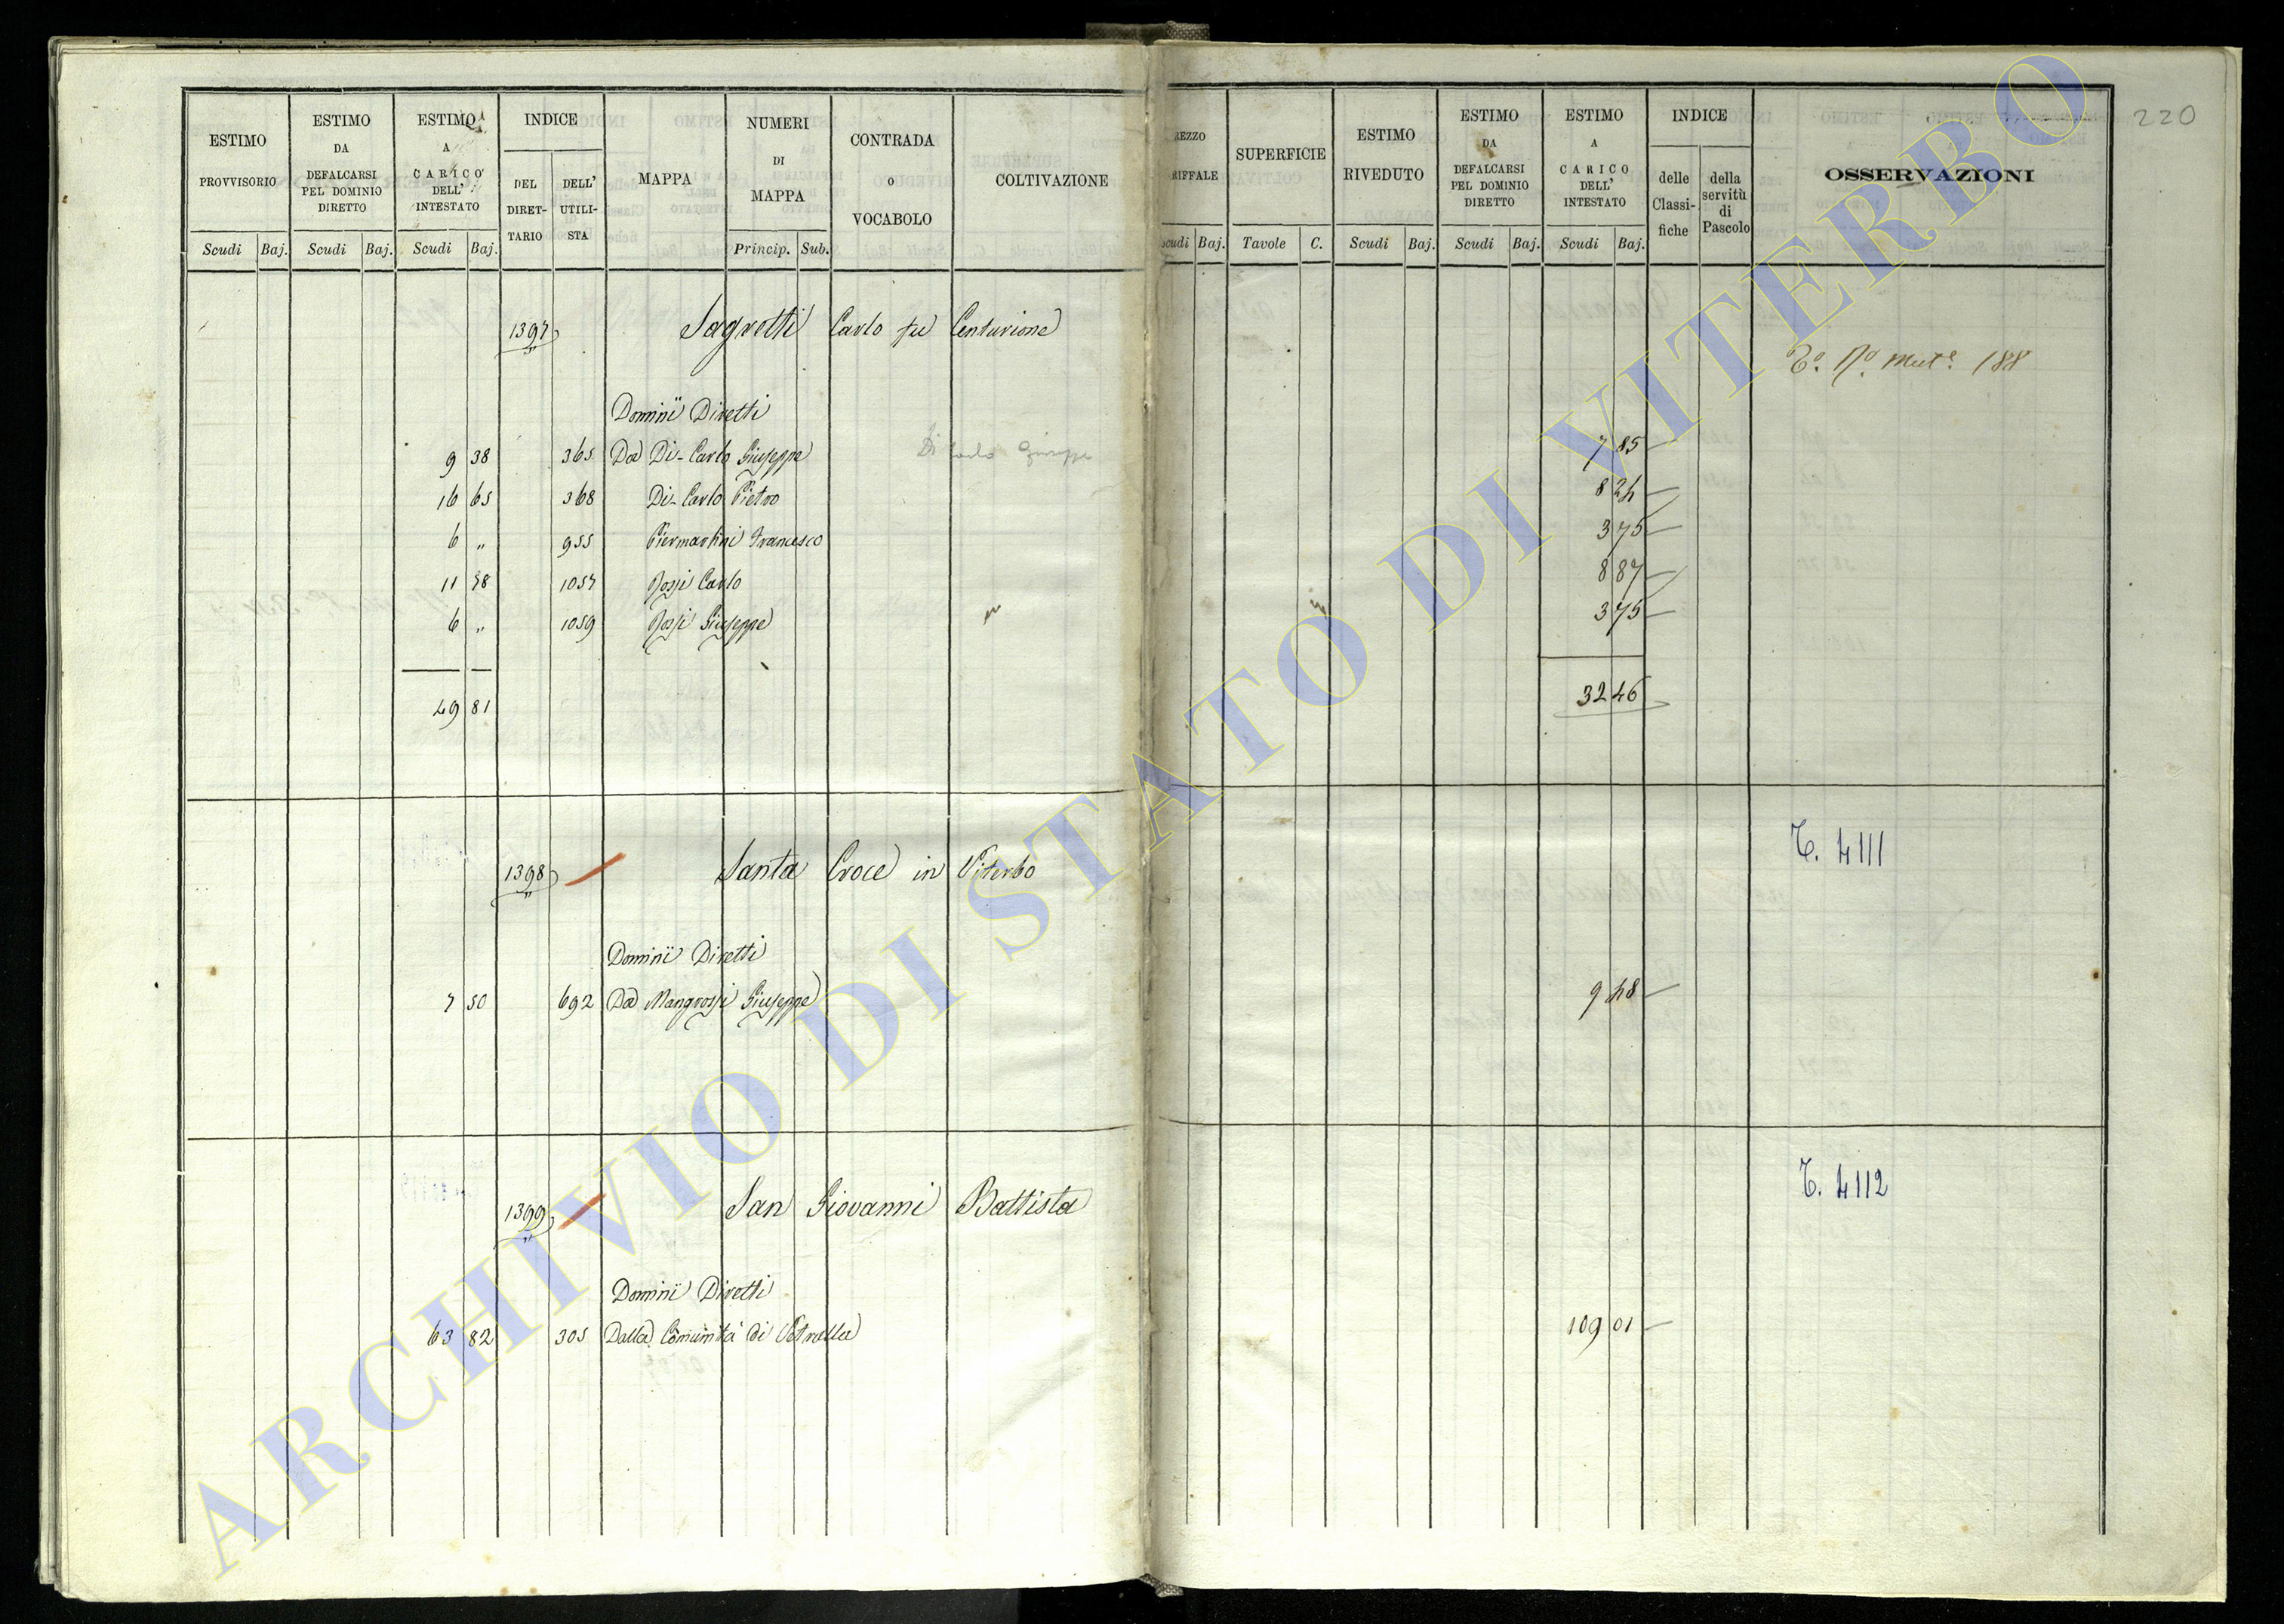 220
ESTIMO PROVVISORIO
ESTIMO DA DEFALCARSI PEL DOMINIO DIRETTO
ESTIMO A CARICO DELL' INTESTATO
INDICE
DEL DIRET-TARIO
DELL' UTILI-STA
MAPPA
NUMERI DI MAPPA
CONTRADA O VOCABOLO
COLTIVAZIONE
REZZO RIFFALE
SUPERFICIE
ESTIMO RIVEDUTO
ESTIMO DA DEFALCARSI PEL DOMINIO DIRETTO
ESTIMO A CARICO DELL' INTESTATO
INDICE
delle Classi-fiche
della servitù di Pascolo
OSSERVAZIONI
Scudi Baj. Scudi Baj. Scudi Baj. Princip. Sub. Scudi Baj. Tavole C. Scudi Baj. Scudi Baj. Scudi Baj.
1397 Sagretti Carlo fu Centurione
188
Dominii Diretti
9 38 365 Da Di-Carlo Giuseppe Di Carlo Giuseppe 7 85
16 65 368 Di-Carlo Pietro 8 24
6 " 955 Piermartini Francesco 3 75
11 78 1057 Rossi Carlo 8 87
6 " 1059 Rossi Giuseppe 3 75
49 81 32 46
1398 Santa Croce in Viterbo T. 4111
Dominii Diretti
7 50 692 Da Mangrossi Giuseppe 9 48
1399 San Giovanni Battista T. 4112
Dominii Diretti
63 82 305 Dalla Comunità di Vetralla 109 01
ARCHIVIO DI STATO DI VITERBO